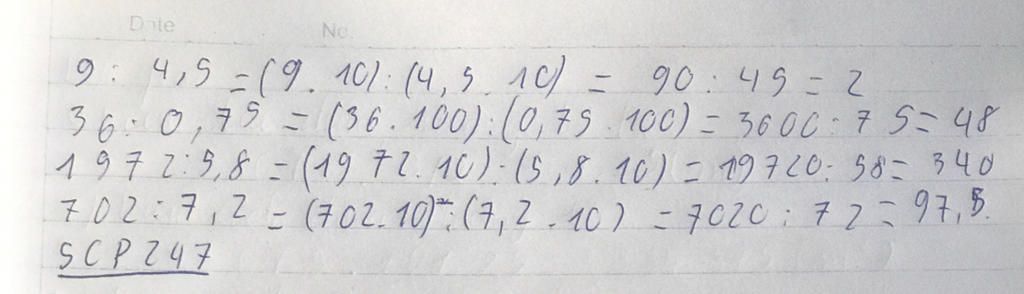 Date No.
9 : 4,5 = (9 . 10) : (4,5 . 10) = 90 : 45 = 2
36 : 0,75 = (36 . 100) : (0,75 . 100) = 3600 : 75 = 48
1972 : 5,8 = (1972 . 10) : (5,8 . 10) = 19720 : 58 = 340
702 : 7,2 = (702 . 10) : (7,2 . 10) = 7020 : 72 = 97,5.
SCP 247